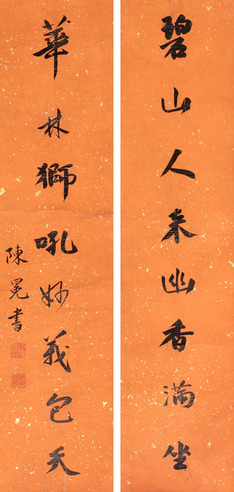 碧山人来幽香滿坐
華林獅吼妙義包天
陳冕書